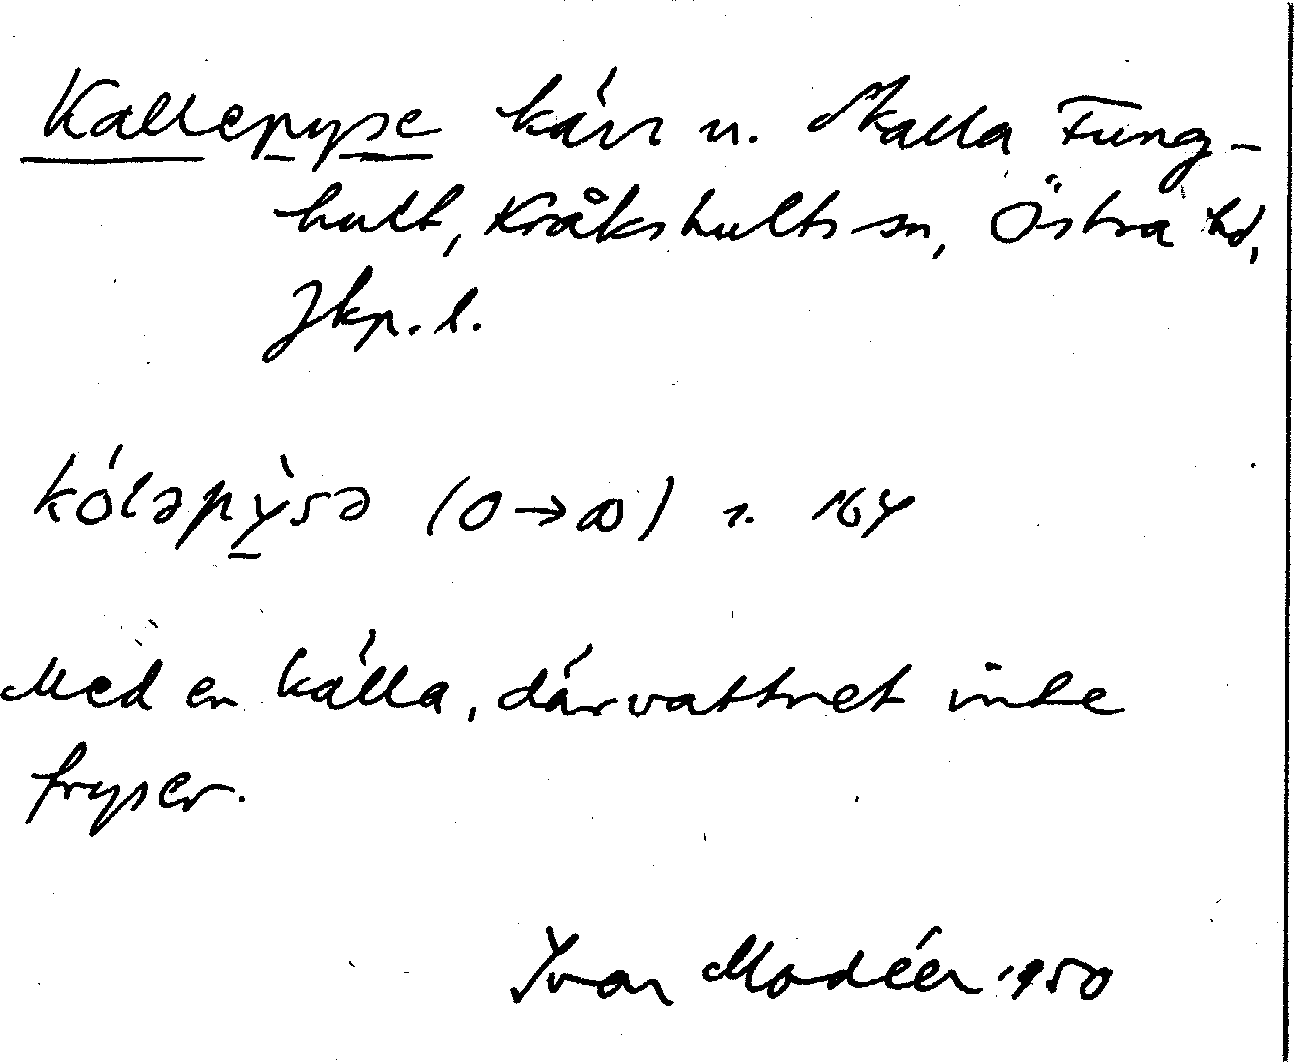 Kallepyse kärr u. Skalla Fung-
hult, Kråkshults sn, Östra hd,
Jkp. l.
kóləpỳsə (o→ꝏ) r. 164
Med en källa, där vattnet inte
fryser.
Ivar Modéer 1950